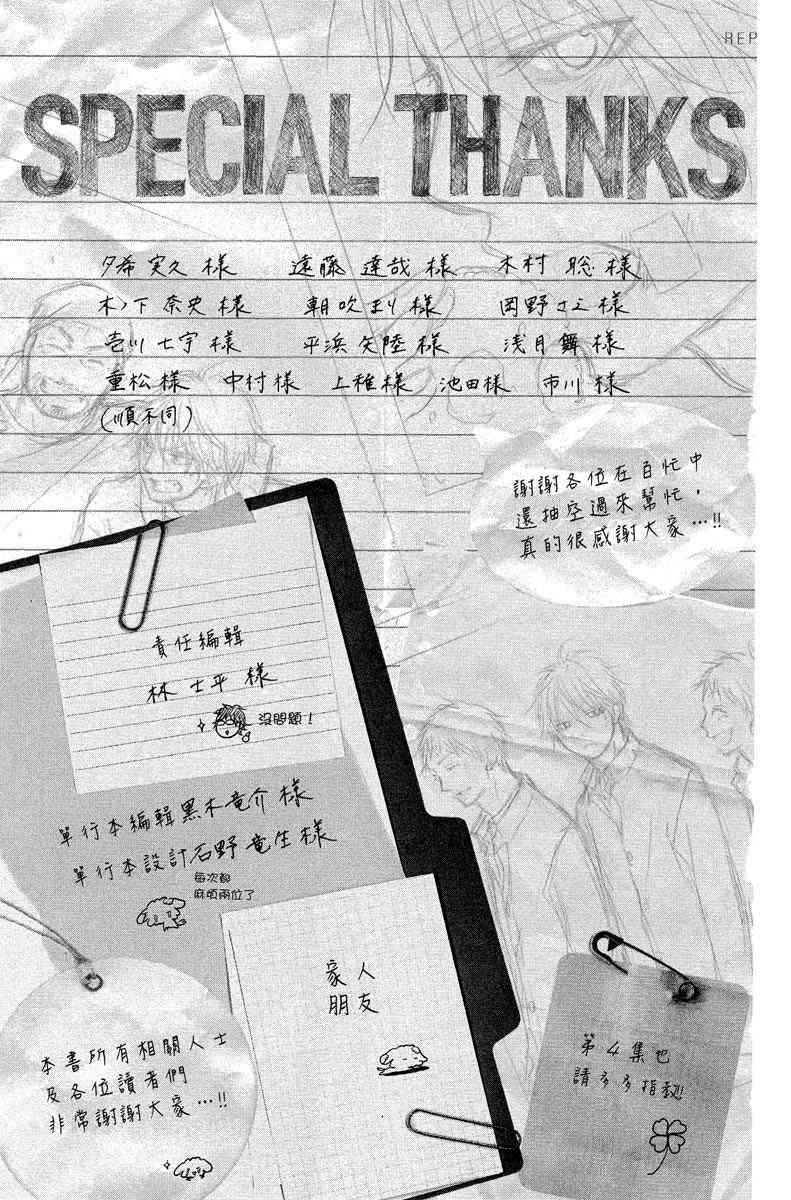 REP
SPECIAL THANKS
夕希 実久 様 遠藤 達哉 様 木村 聡 様
木ノ下 奈央 様 朝吹まり 様 岡野さえ 様
壱川 七宇 様 平浜 矢陸 様 浅月 舞 様
重松 様 中村 様 上稚 様 池田 様 市川 様
(順不同)
謝謝各位在百忙中
還抽空過來幫忙，
真的很感謝大家…!!
責任編輯
林 士平 様
沒問題！
單行本編輯 黑木竜介 様
單行本設計 石野竜生 様
每次都
麻煩兩位了
家人
朋友
本書所有相關人士
及各位讀者們
非常謝謝大家…!!
第4集也
請多多指教!!